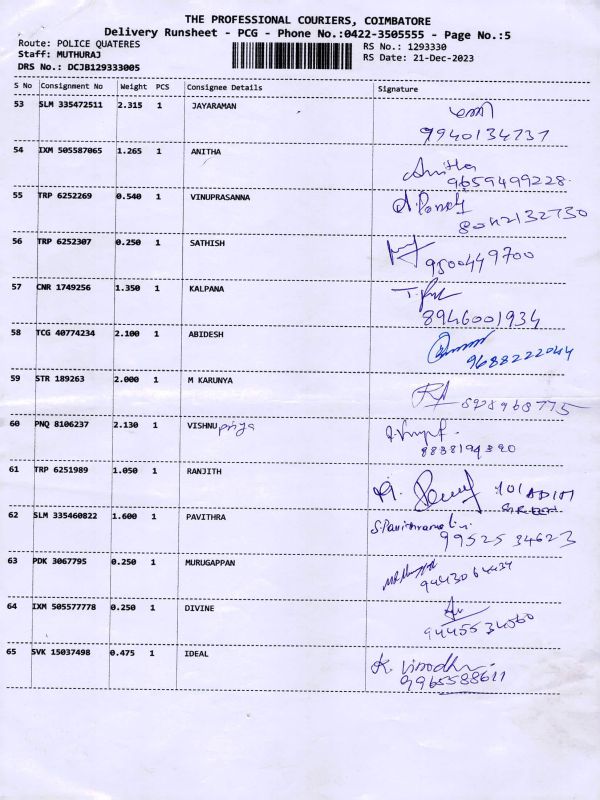 THE PROFESSIONAL COURIERS, COIMBATORE
Delivery Runsheet - PCG - Phone No.:0422-3505555 - Page No.:5
Route: POLICE QUATERES RS No.: 1293330
Staff: MUTHURAJ RS Date: 21-Dec-2023
DRS No.: DCJB129333005
S No Consignment No Weight PCS Consignee Details Signature
53 SLM 335472511 2.315 1 JAYARAMAN
9940134737
54 IXM 505587065 1.265 1 ANITHA
Anitha
9659499228.
55 TRP 6252269 0.540 1 VINUPRASANNA
56 TRP 6252307 0.250 1 SATHISH
9500449700
57 CNR 1749256 1.350 1 KALPANA
8946001934
58 TCG 40774234 2.100 1 ABIDESH
9688222044
59 STR 189263 2.000 1 M KARUNYA
60 PNQ 8106237 2.130 1 VISHNU priya
61 TRP 6251989 1.050 1 RANJITH
62 SLM 335460822 1.600 1 PAVITHRA
99525 34623
63 PDK 3067795 0.250 1 MURUGAPPAN
64 IXM 505577778 0.250 1 DIVINE
65 SVK 15037498 0.475 1 IDEAL
K. Vinodhi.
9965588611